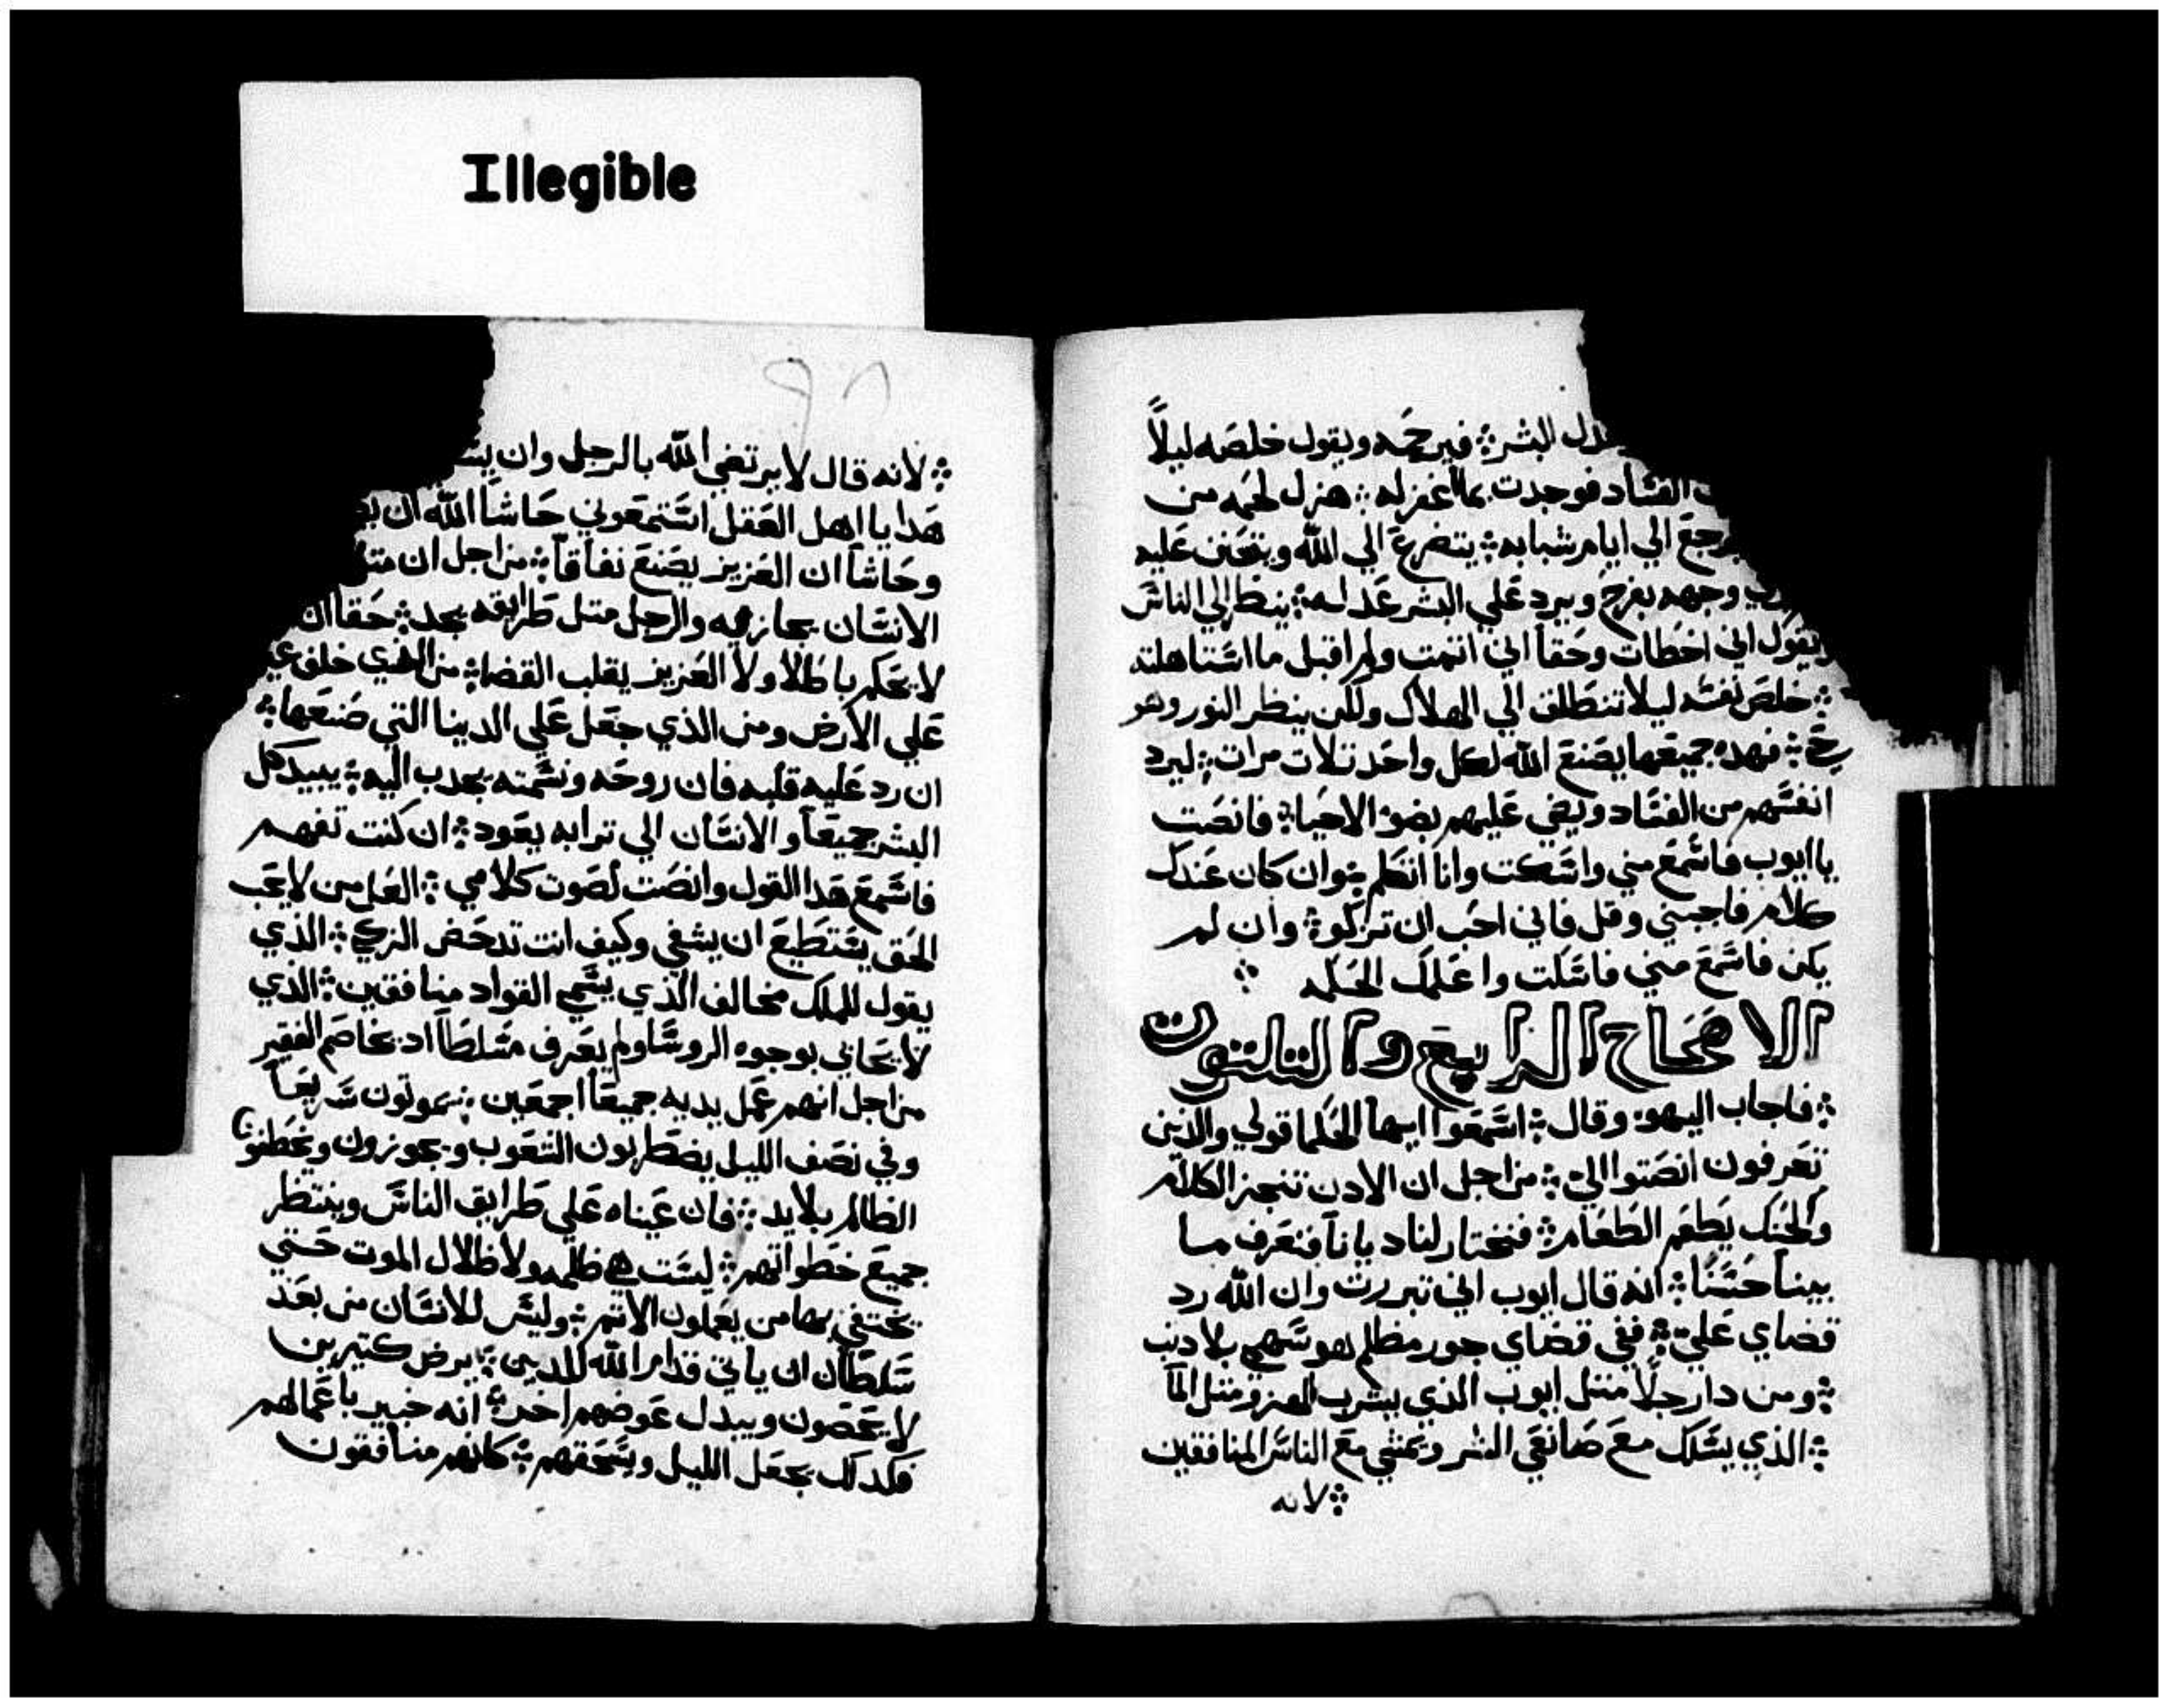 Illegible
البشر ❖ فيرحمه ويقول خلصه ليلاً
الفساد فوجدت بما اغفر له ❖ هزل لحمه من
يرجع الي ايام شبابه ❖ يتضرع الي الله ويتحنن عليه
وجهه بفرح ويرد علي البشر عدله ❖ ينظر الي الناس
ويقول اني اخطات وحقاً اني اتمت ولم اقبل ما استاهلته
❖ خلص نفسه ليلا تنطلق الي الهلاك ولكن ينظر النور وهو
حيّ ❖ فهده جميعها يصنع الله لكل واحد تلات مرات ❖ ليرد
انفسهم من الفساد ويضي عليهم بضو الاحيا ❖ فانصت
يا ايوب فاسمع مني واسكت وانا اتكلم ❖ وان كان عندك
كلام فاجبني وقل فاني احب ان تزكو ❖ وان لم
يكن فاسمع مني فاسكت واعلمك الحكمه ❖
الاصحاح الرابع والتلتون
❖ فاجاب اليهو وقال ❖ اسمعوا ايها الحكما قولي والذين
تعرفون انصتوا الي ❖ من اجل ان الادن تنجز الكلام
والحنك يطعم الطعام ❖ فنختار لنا ديانا فنعرف ما
بيننا حسنًا ❖ انه قال ايوب اني تبررت وان الله رد
قضاي علي ❖ ففي قضاي جور مظلم هو سهمي بلا دنب
❖ ومن دا رجلاً متل ايوب الذي يشرب الهزو متل المآ
❖ الذي يسلك مع صانعي الشر ويمشي مع الناس المنافقين
❖ لانه
٩٨
❖ لانه قال لا يرتضي الله بالرجل وان
هدا يا اهل العقل استمعوني حاشا الله ان
وحاشا ان العزيز يصنع نفاقاً ❖ من اجل ان
الانسان يجازيه والرجل متل طرايقه يجد ❖ حقا ان
لا يحكم باطلاً ولا العزيز يقلب القضا ❖ من الذي خلفه
علي الارض ومن الذي جعل علي الدنيا التي صنعها ❖
ان رد عليه قلبه فان روحه ونسمته يجدب اليه ❖ يبيد كل
البشر جميعاً والانسان الي ترابه يعود ❖ ان كنت تفهم
فاسمع هدا القول وانصت لصوت كلامي ❖ العل من لا يحب
الحق يستطيع ان يشفي وكيف انت تدحض الزكي ❖ الذي
يقول للملك مخالف الذي يسمي القواد منافقين ❖ الذي
لا يحابي بوجوه الروسا ولم يعرف مسلطاً اد يخاصم الفقير
من اجل انهم عمل يديه جميعاً اجمعين ❖ يموتون سريعاً
وفي نصف الليل يضطربون الشعوب ويجوزون ويخطفون
الظالم بلا يد ❖ فان عيناه علي طرايق الناس وينتظر
جميع خطواتهم ❖ ليست هي ظلمه ولا ظلال الموت حتي
يختفي بها من يعملون الاتم ❖ وليس للانسان من بعد
سلطان ان ياتي قدام الله للدين ❖ يرض كتيرين
لا يحصون ويبدل عوضهم اخر ❖ انه خبير باعمالهم
فكدلك يجعل الليل ويسحقهم ❖ كانهم منافقون